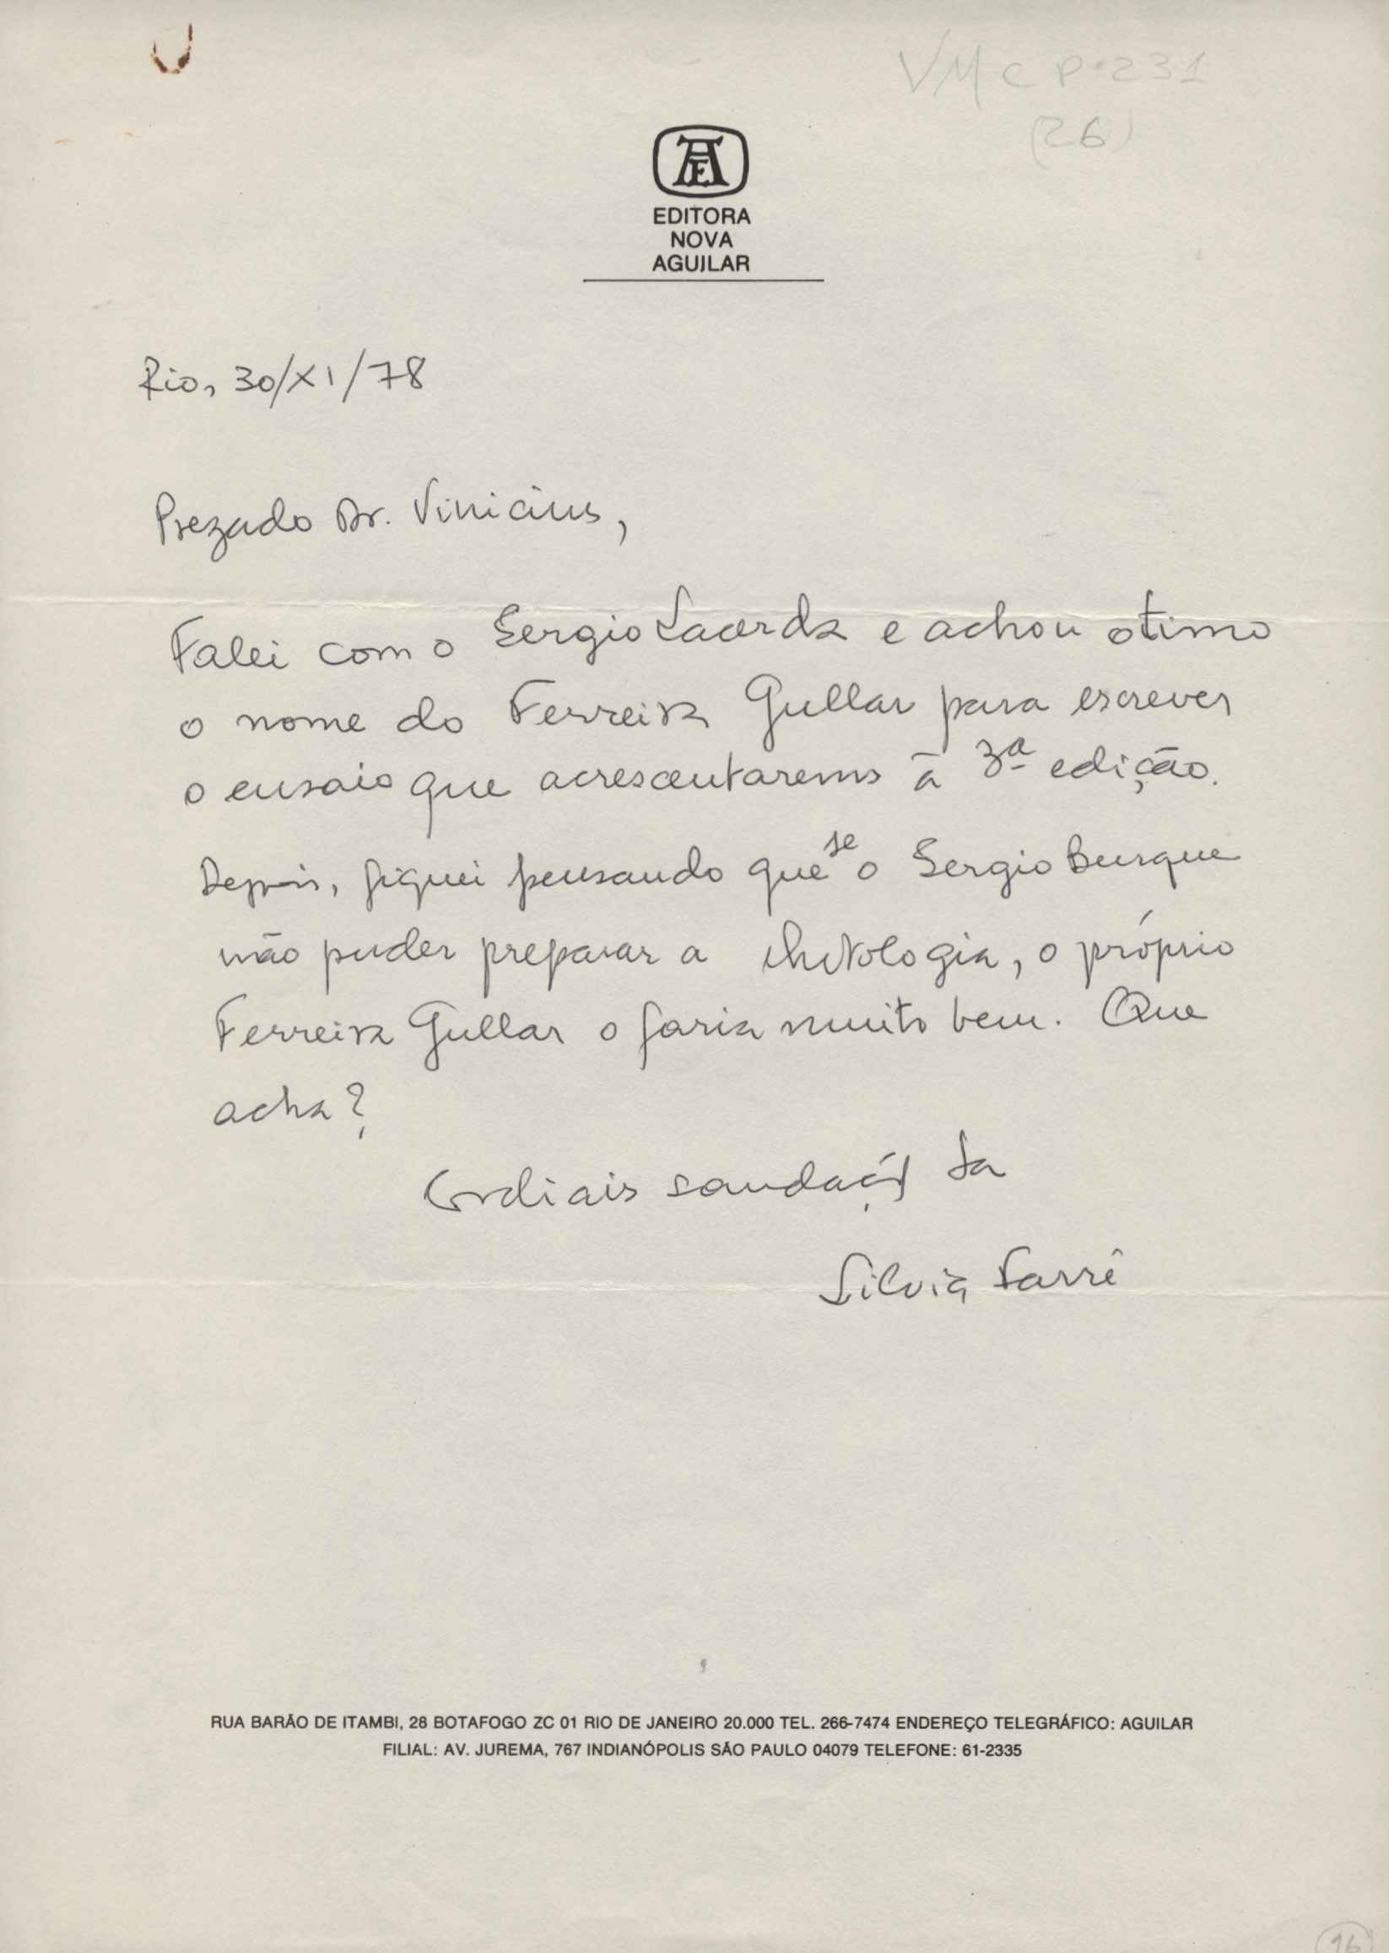 VMcp.231
(26)
AE
EDITORA
NOVA
AGUILAR
Rio, 30/XI/78
Prezado Dr. Vinicius,
Falei com o Sergio Lacerda e achou otimo
o nome do Ferreira Gullar para escrever
o ensaio que acrescentaremos à 3ª edição.
Depois, fiquei pensando que se o Sergio Buarque
não puder preparar a Antologia, o próprio
Ferreira Gullar o faria muito bem. Que
acha?
Cordiais saudações da
Silvia
RUA BARÃO DE ITAMBI, 28 BOTAFOGO ZC 01 RIO DE JANEIRO 20.000 TEL. 266-7474 ENDEREÇO TELEGRÁFICO: AGUILAR
FILIAL: AV. JUREMA, 767 INDIANÓPOLIS SÃO PAULO 04079 TELEFONE: 61-2335